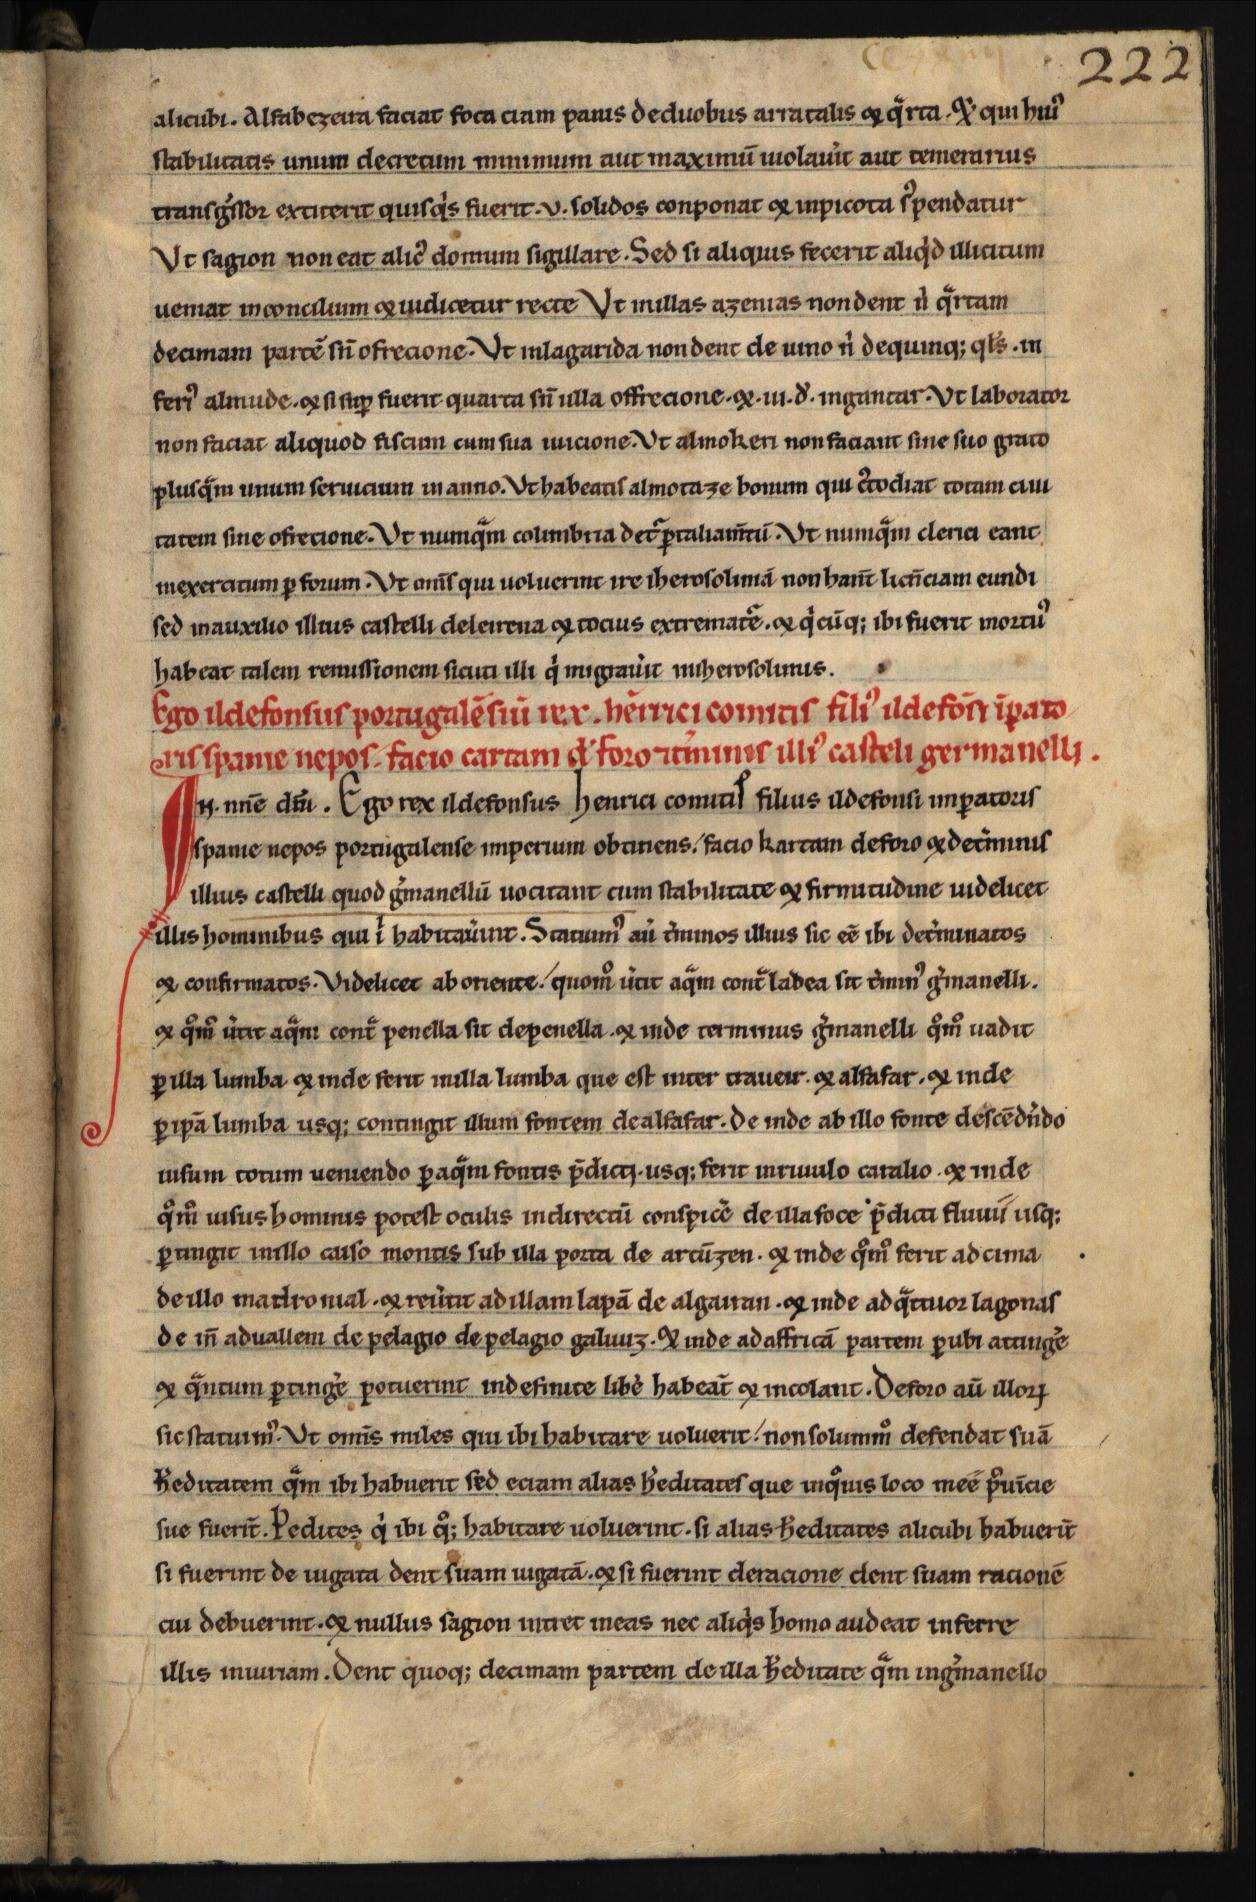 222
alicubi. Alfabezeira faciat foca ciam panis de duobus arratalis ⁊ qͣrta. ⁊ qui huiꝰ
stabilitatis unum decretum minimum aut maximū uiolau͛it aut temerarius
transg͛ssor extiterit quisqͥs fuerit. v. solidos conponat ⁊ inpicota sꝰpendatur
Vt sagion non eat alicꝰ domum sigillare. Sed si aliquis fecerit aliqͥd illicitum
ueniat inconcilium ⁊ iudicetur recte Vt inillas azenias nondent n̄ qͣrtam
decimam partē sn̄ ofrecione. Vt inlagarida nondent de uino n̄ dequinq; qͣls. in
feriꝰ almude. ⁊ si suꝑ fuerit quarta sn̄ illa offrecione. ⁊. iii. đ. ingantar. Vt laborator
non faciat aliquod fiscum cum sua iuicione. Vt almokeri non faciant sine suo grato
plusqͣm unum seruicium in anno. Vt habeatis almotaze bonum qui cꝰtodiat totam ciui
tatem sine ofrecione. Vt numqͣm colimbria det͛ p͛taliam̄tū. Vt numqͣm clerici eant
inexercitum ꝑ forum. Vt om̄s qui uoluerint ire iherosolimā non hant̄ licn̄ciam eundi
sed inauxilio illius castelli deleirena ⁊ tocius extremat͛e. ⁊ qͥcūq; ibi fuerit mortuꝰ
habeat talem remissionem sicuti illi qͥ migrau͛it inherosolimis.
Ego ildefonsus portugalēsiū rex. hēnrici comitis filiꝰ ildefōsi īꝑato
ris spanie nepos. facio cartam đ foro ⁊t͛minis illiꝰ casteli germanelli.
IN. nn̄e dm̄i. Ego rex ildefonsus henrici comitis filius ildefonsi inꝑatoris
spanie nepos portugalense imperium obtinens. facio kartam deforo ⁊ det͛minis
illius castelli quod g͛manellū uocitant cum stabilitate ⁊ firmitudine uidelicet
illis hominibus qui iͥ habitau͛int. Statuimꝰ aū t͛minos illius sic eē ibi det͛minatos
⁊ confirmatos. Videlicet ab oriente. quomͦ u͛tit aqͣm contͣ ladea sit t͛minꝰ g͛manelli.
⁊ qͦmͦ u͛tit aqͣm contͣ penella sit depenella. ⁊ inde terminus g͛manelli qͦmͦ uadit
ꝑ illa lumba ⁊ inde ferit inilla lumba que est inter traueir. ⁊ alfafar. ⁊ inde
ꝑ ip̄a lumba usq; contingit illum fontem dealfafar. De inde ab illo fonte descēdn̄do
iusum totum ueniendo ꝑ aqͣm fontis p̄dicti. usq; ferit inriuulo caralio. ⁊ inde
qͦmͦ uisus hominis potest oculis indirectū conspic͛e de illa foce p̄dicti fluuii usq;
ꝑtingit inillo caiso montis sub illa porta de artūzen. ⁊ inde qͦmͦ ferit ad cima
de illo madronial. ⁊ reu͛tit ad illam lapā de algauan. ⁊ inde ad qͣttuor lagonas
de in̄ ad uallem de pelagio de pelagio galuuz. ⁊ inde ad affricā partem ꝑ ubi atting͛e
⁊ qͣntum ꝑting͛e potuerint indefinite lib͛e habeāt ⁊ incolant. De foro aū illoꝝ
sic statuimꝰ. Vt om̄s miles qui ibi habitare uoluerit. non solummͦ defendat suā
h͛editatem qͣm ibi habuerit sed eciam alias h͛editates que inqͦuis loco meē pͦuīcie
sue fuerīt. Pedites qͥ ibi qͦ; habitare uoluerint. si alias h͛editates alicubi habuerīt
si fuerint de iugata dent suam iugatā. ⁊ si fuerint deracione dent suam racionē
cui debuerint. ⁊ nullus sagion intret ineas nec aliqͥs homo audeat inferre
illis iniuriam. Dent quoq; decimam partem de illa h͛editate qͣm ing͛manello